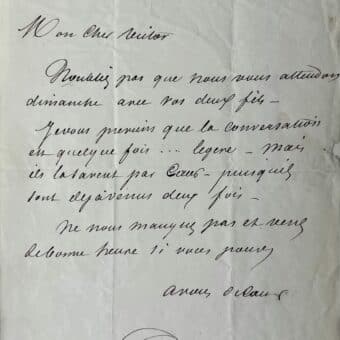 Mon cher
N'oubliez pas que nous vous attendons
dimanche avec vos deux fils -
Je vous previens que la conversation
est quelque fois ... legere - mais
ils la savent par Cœur - puisqu'ils
sont déjà venus deux fois -
Ne nous manquez pas et venez
de bonne heure si vous pouvez
à vous de Cœur